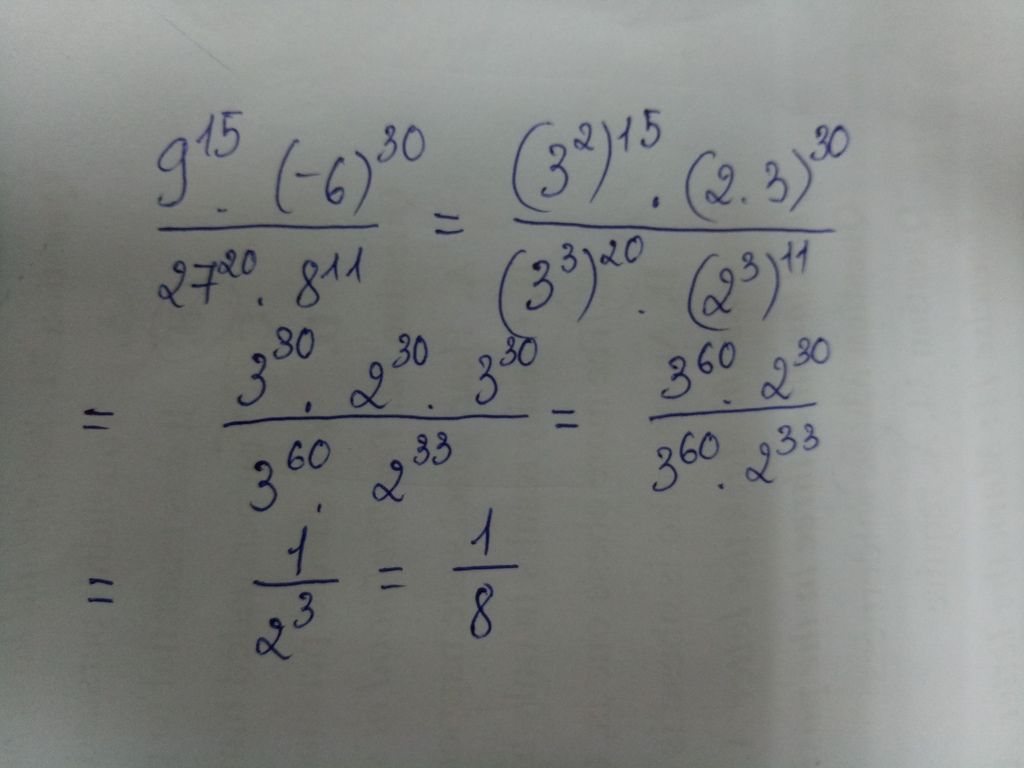 \frac{9^{15} \cdot (-6)^{30}}{27^{20} \cdot 8^{11}} = \frac{(3^2)^{15} \cdot (2 \cdot 3)^{30}}{(3^3)^{20} \cdot (2^3)^{11}}
= \frac{3^{30} \cdot 2^{30} \cdot 3^{30}}{3^{60} \cdot 2^{33}} = \frac{3^{60} \cdot 2^{30}}{3^{60} \cdot 2^{33}}
= \frac{1}{2^3} = \frac{1}{8}